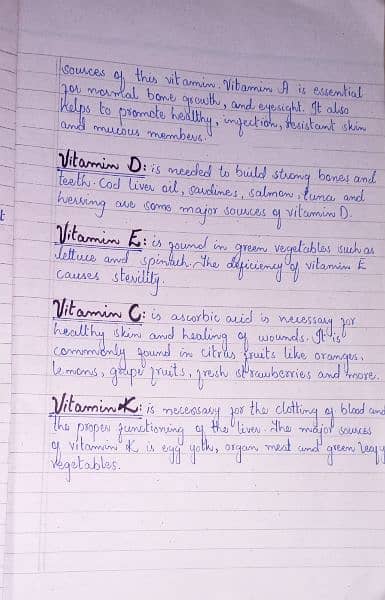 sources of this vitamin. Vitamin A is essential
for normal bone growth, and eyesight. It also
helps to promote healthy, infection, resistant skin
and mucous members.
Vitamin D: is needed to build strong bones and
teeth. Cod liver oil, sardines, salmon, tuna and
herring are some major sources of vitamin D.
Vitamin E: is found in green vegetables such as
lettuce and spinach. The deficiency of vitamin E
causes sterility.
Vitamin C: is ascorbic acid is necessary for
healthy skin and healing of wounds. It is
commonly found in citrus fruits like oranges,
lemons, grape fruits, fresh strawberries and more.
Vitamin K: is necessary for the clotting of blood and
the proper functioning of the liver. The major sources
of vitamin K is egg yolk, organ meat and green leafy
vegetables.